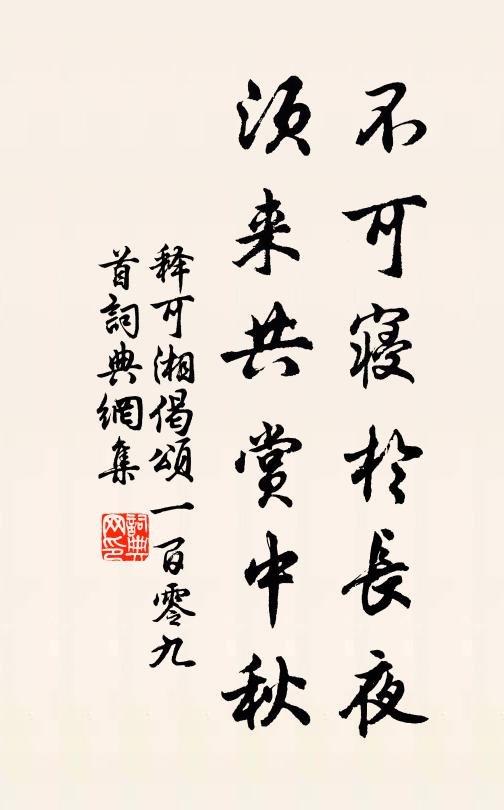 不可寝於長夜
須来共賞中秋
释可湘偈頌一百零九
首詞典網集
詞典
网印